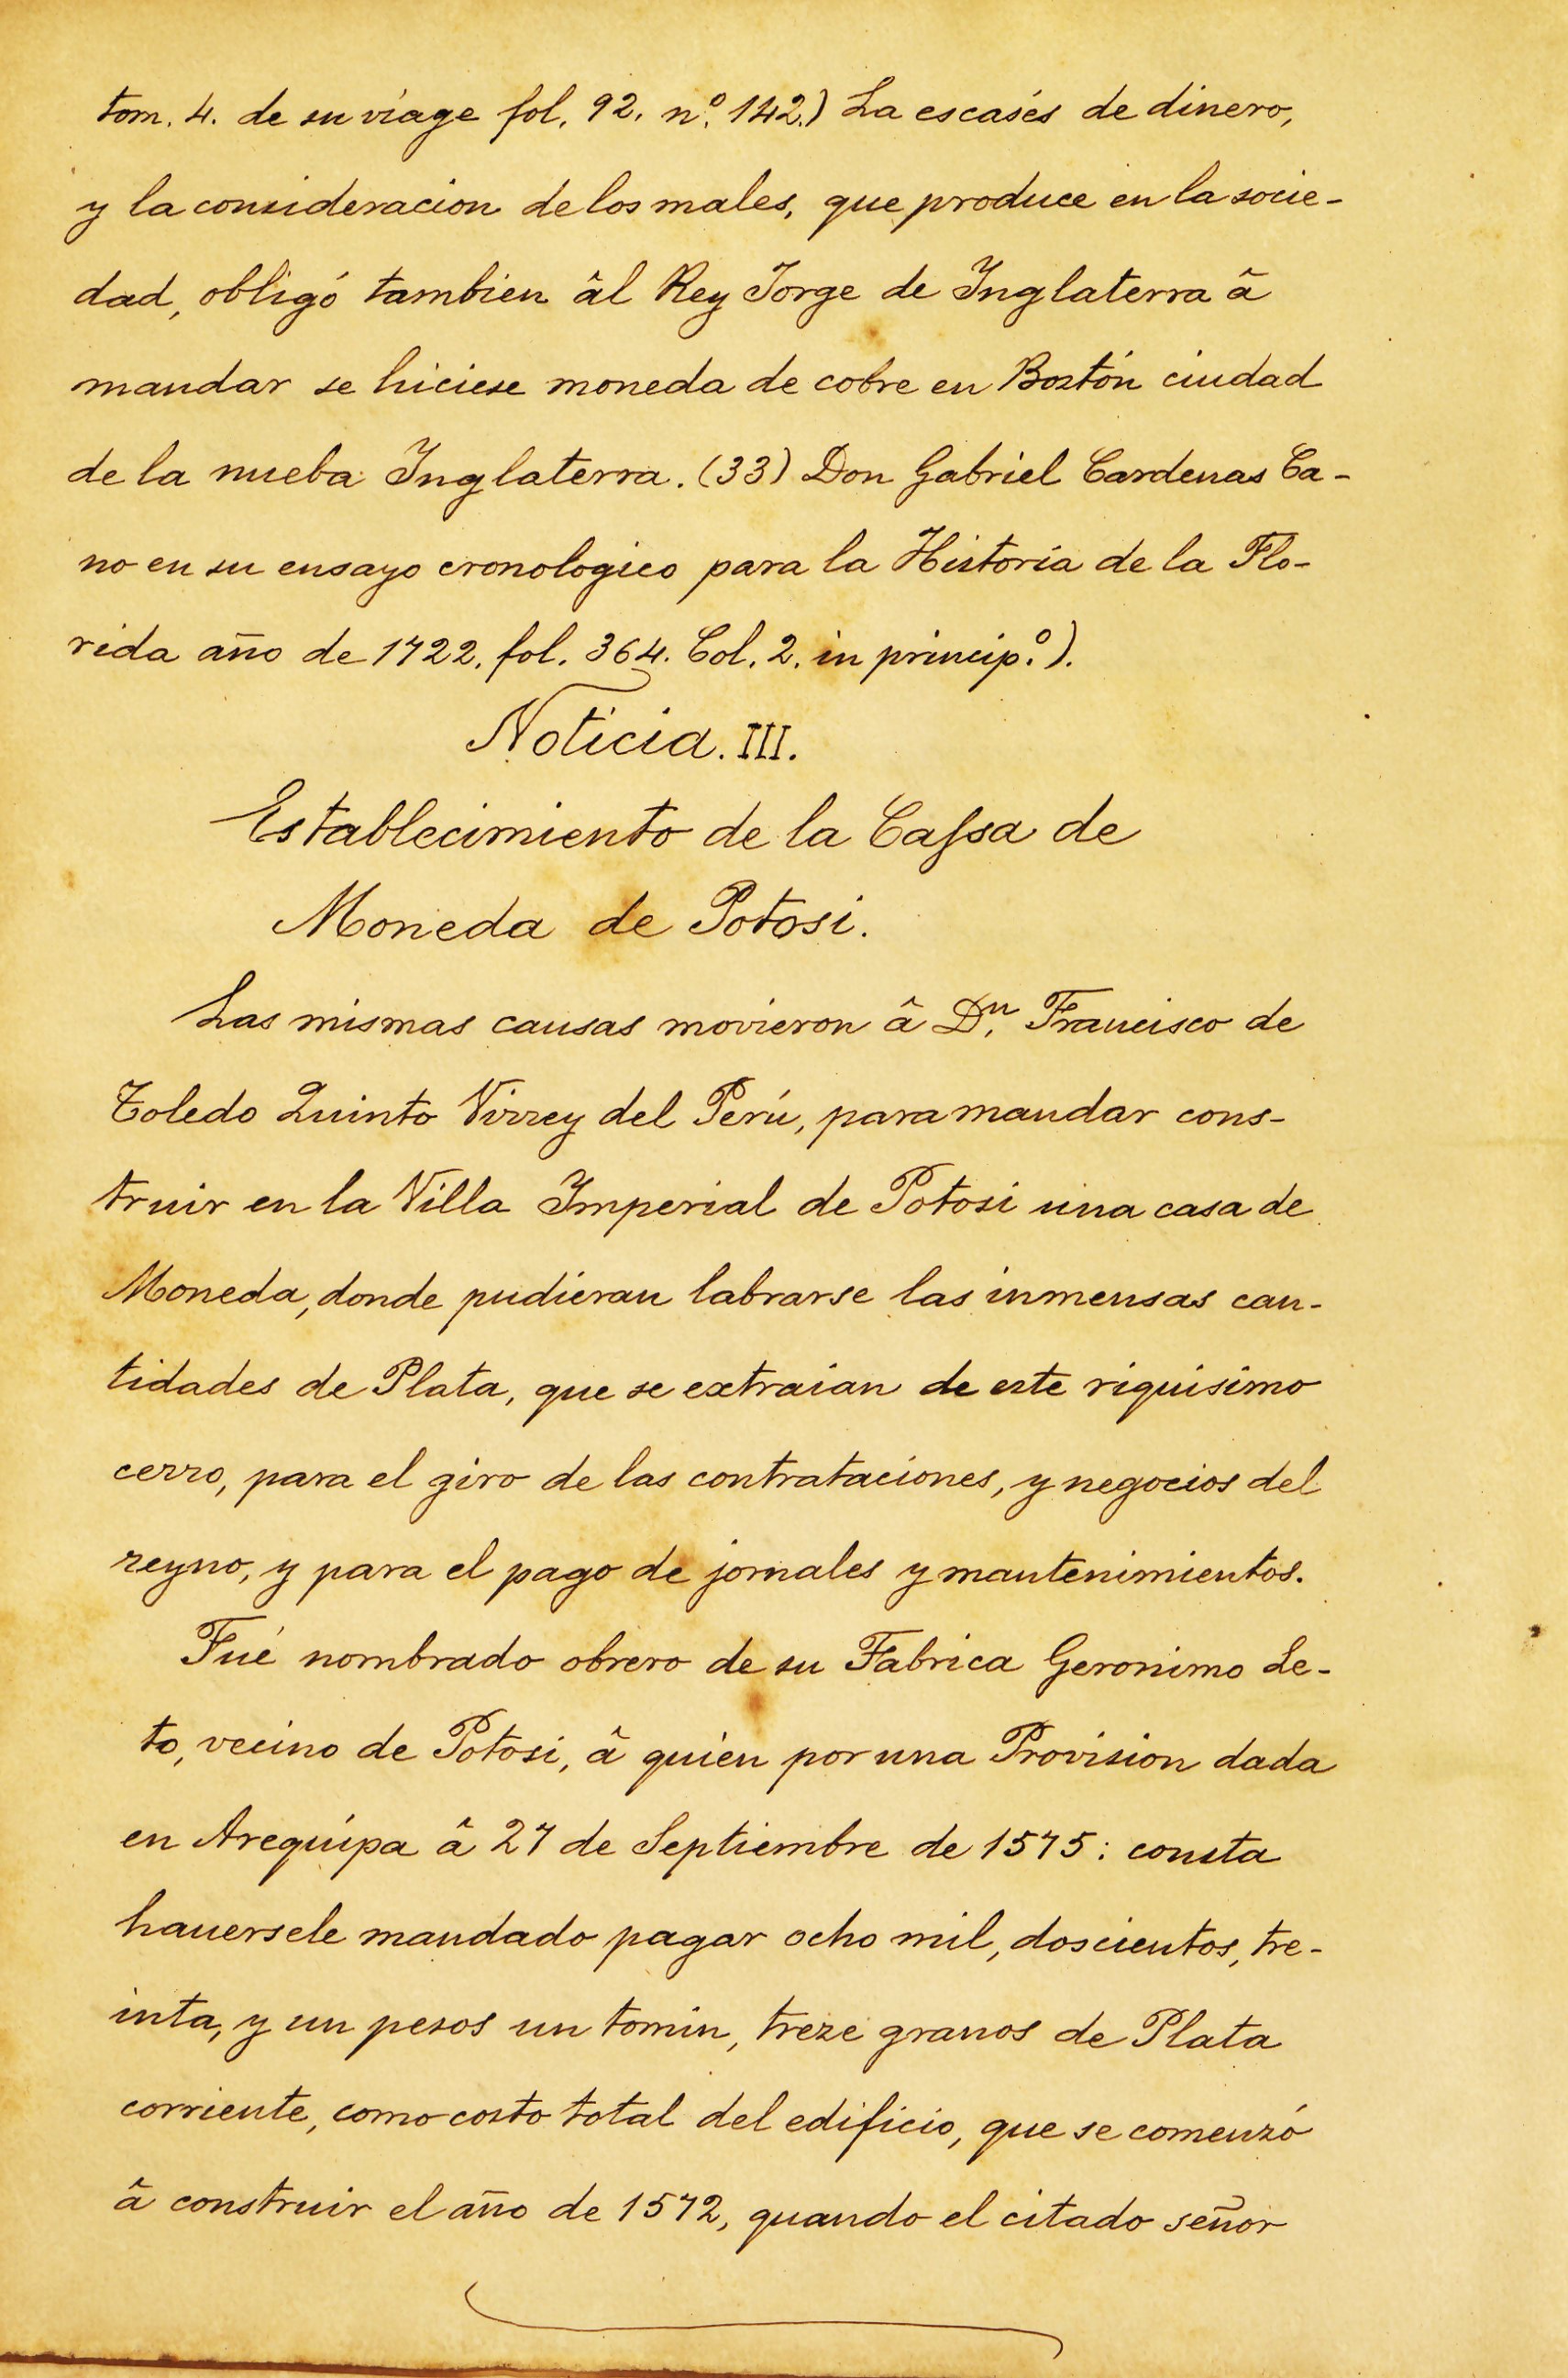 tom. 4. de su viage fol. 92. nº. 142.) La escasés de dinero,
y la consideracion de los males, que produce en la socie-
dad, obligó tambien âl Rey Jorge de Inglaterra â
mandar se hiciese moneda de cobre en Bostón ciudad
de la nueba Inglaterra. (33) Don Gabriel Cardenas Ca-
no en su ensayo cronologico para la Historia de la Flo-
rida año de 1722. fol. 364. Col. 2. in princip.º).
Noticia. III.
Establecimiento de la Cassa de
Moneda de Potosi.
Las mismas causas movieron â Dn. Francisco de
Toledo Quinto Virrey del Perú, para mandar cons-
truir en la Villa Imperial de Potosi una casa de
Moneda, donde pudieran labrarse las inmensas can-
tidades de Plata, que se extraian de este riquisimo
cerro, para el giro de las contrataciones, y negocios del
reyno, y para el pago de jornales y mantenimientos.
Fué nombrado obrero de su Fabrica Geronimo Le-
to, vecino de Potosi, â quien por una Provision dada
en Arequipa â 27 de Septiembre de 1575: consta
hauersele mandado pagar ocho mil, doscientos, tre-
inta, y un pesos un tomin, treze granos de Plata
corriente, como costo total del edificio, que se comenzó
â construir el año de 1572, quando el citado señor